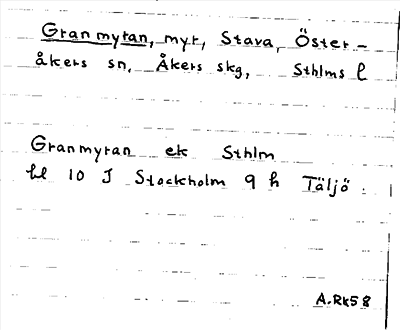 Granmyran, myr, Stava, Öster-
åkers sn, Åkers skg, Sthlms l
Granmyran ek Sthlm
bl 10 I Stockholm 9 h Täljö
A.Rk58